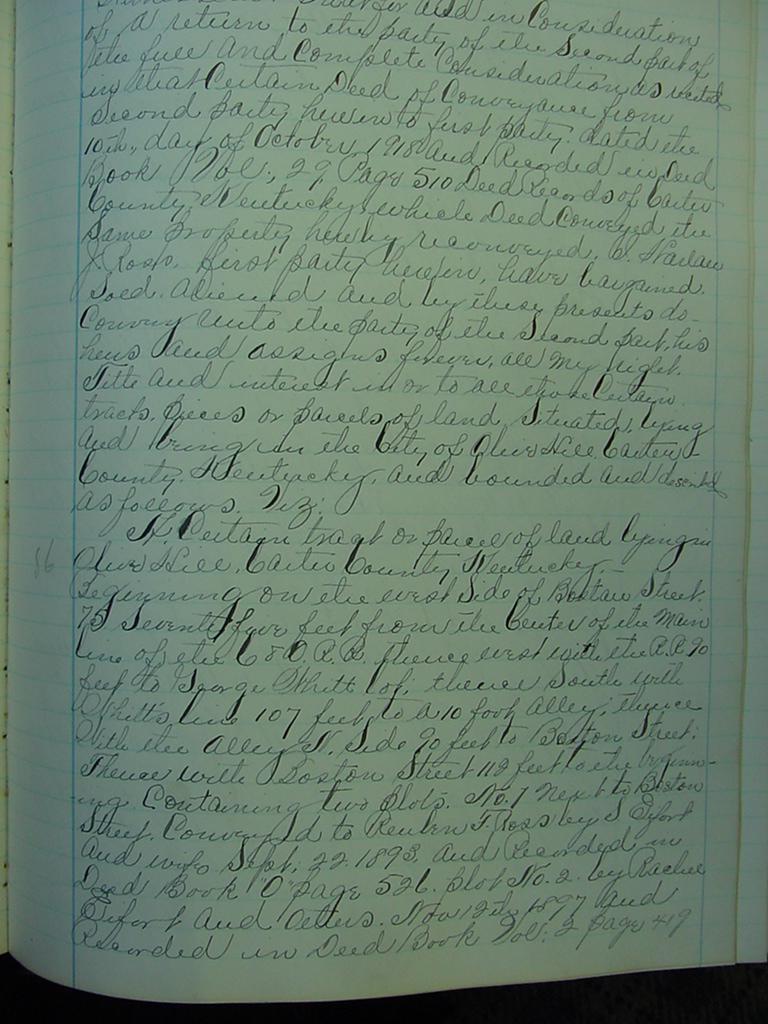 for and in Consideration
of a return to the party of the Second part of
the full and Complete Consideration as recited
in that Certain Deed of Conveyance from
Second party herein to first party. dated the
10th, day of October 1918 and Recorded in Deed
Book Vol:, 29, Page 510 Deed Records of Carter
County, Kentucky, which Deed Conveyed the
Same Property hereby reconveyed, I. Harlan
J. Ross. first party herein, have bargained.
Sold. Aliened and by these presents do
Convey unto the party of the Second part, his
heirs and assigns forever, all my right.
Title and interest in or to all those Certain
tracts, pieces or parcels of land, Situated, lying
and being in the City of Olive Hill, Carter
County, Kentucky, and bounded and described
as follows, Viz:
A Certain tract or parcel of land lying in
86 Olive Hill, Carter County, Kentucky.
Beginning on the west Side of Boston Street.
75 Seventy five feet from the Center of the Main
line of the C & O. R.R. thence west with the R.R. 90
feet to George Whitt lot, thence South with
Whitt's line 107 feet to a 10 foot Alley; thence
With the Alley N. Side 90 feet to Boston Street;
Thence with Boston Street 112 feet to the beginn-
ing Containing two Plots. No. 1 Next to Boston
Street. Conveyed to Reuben F. Ross by S Eifort
and wife Sept, 22. 1893. and Recorded in
Deed Book "O" page 526. Plot No. 2. by Rachel
Eifort and Others. Nov 12th 1897 and
Recorded in Deed Book Vol: 2 page 419